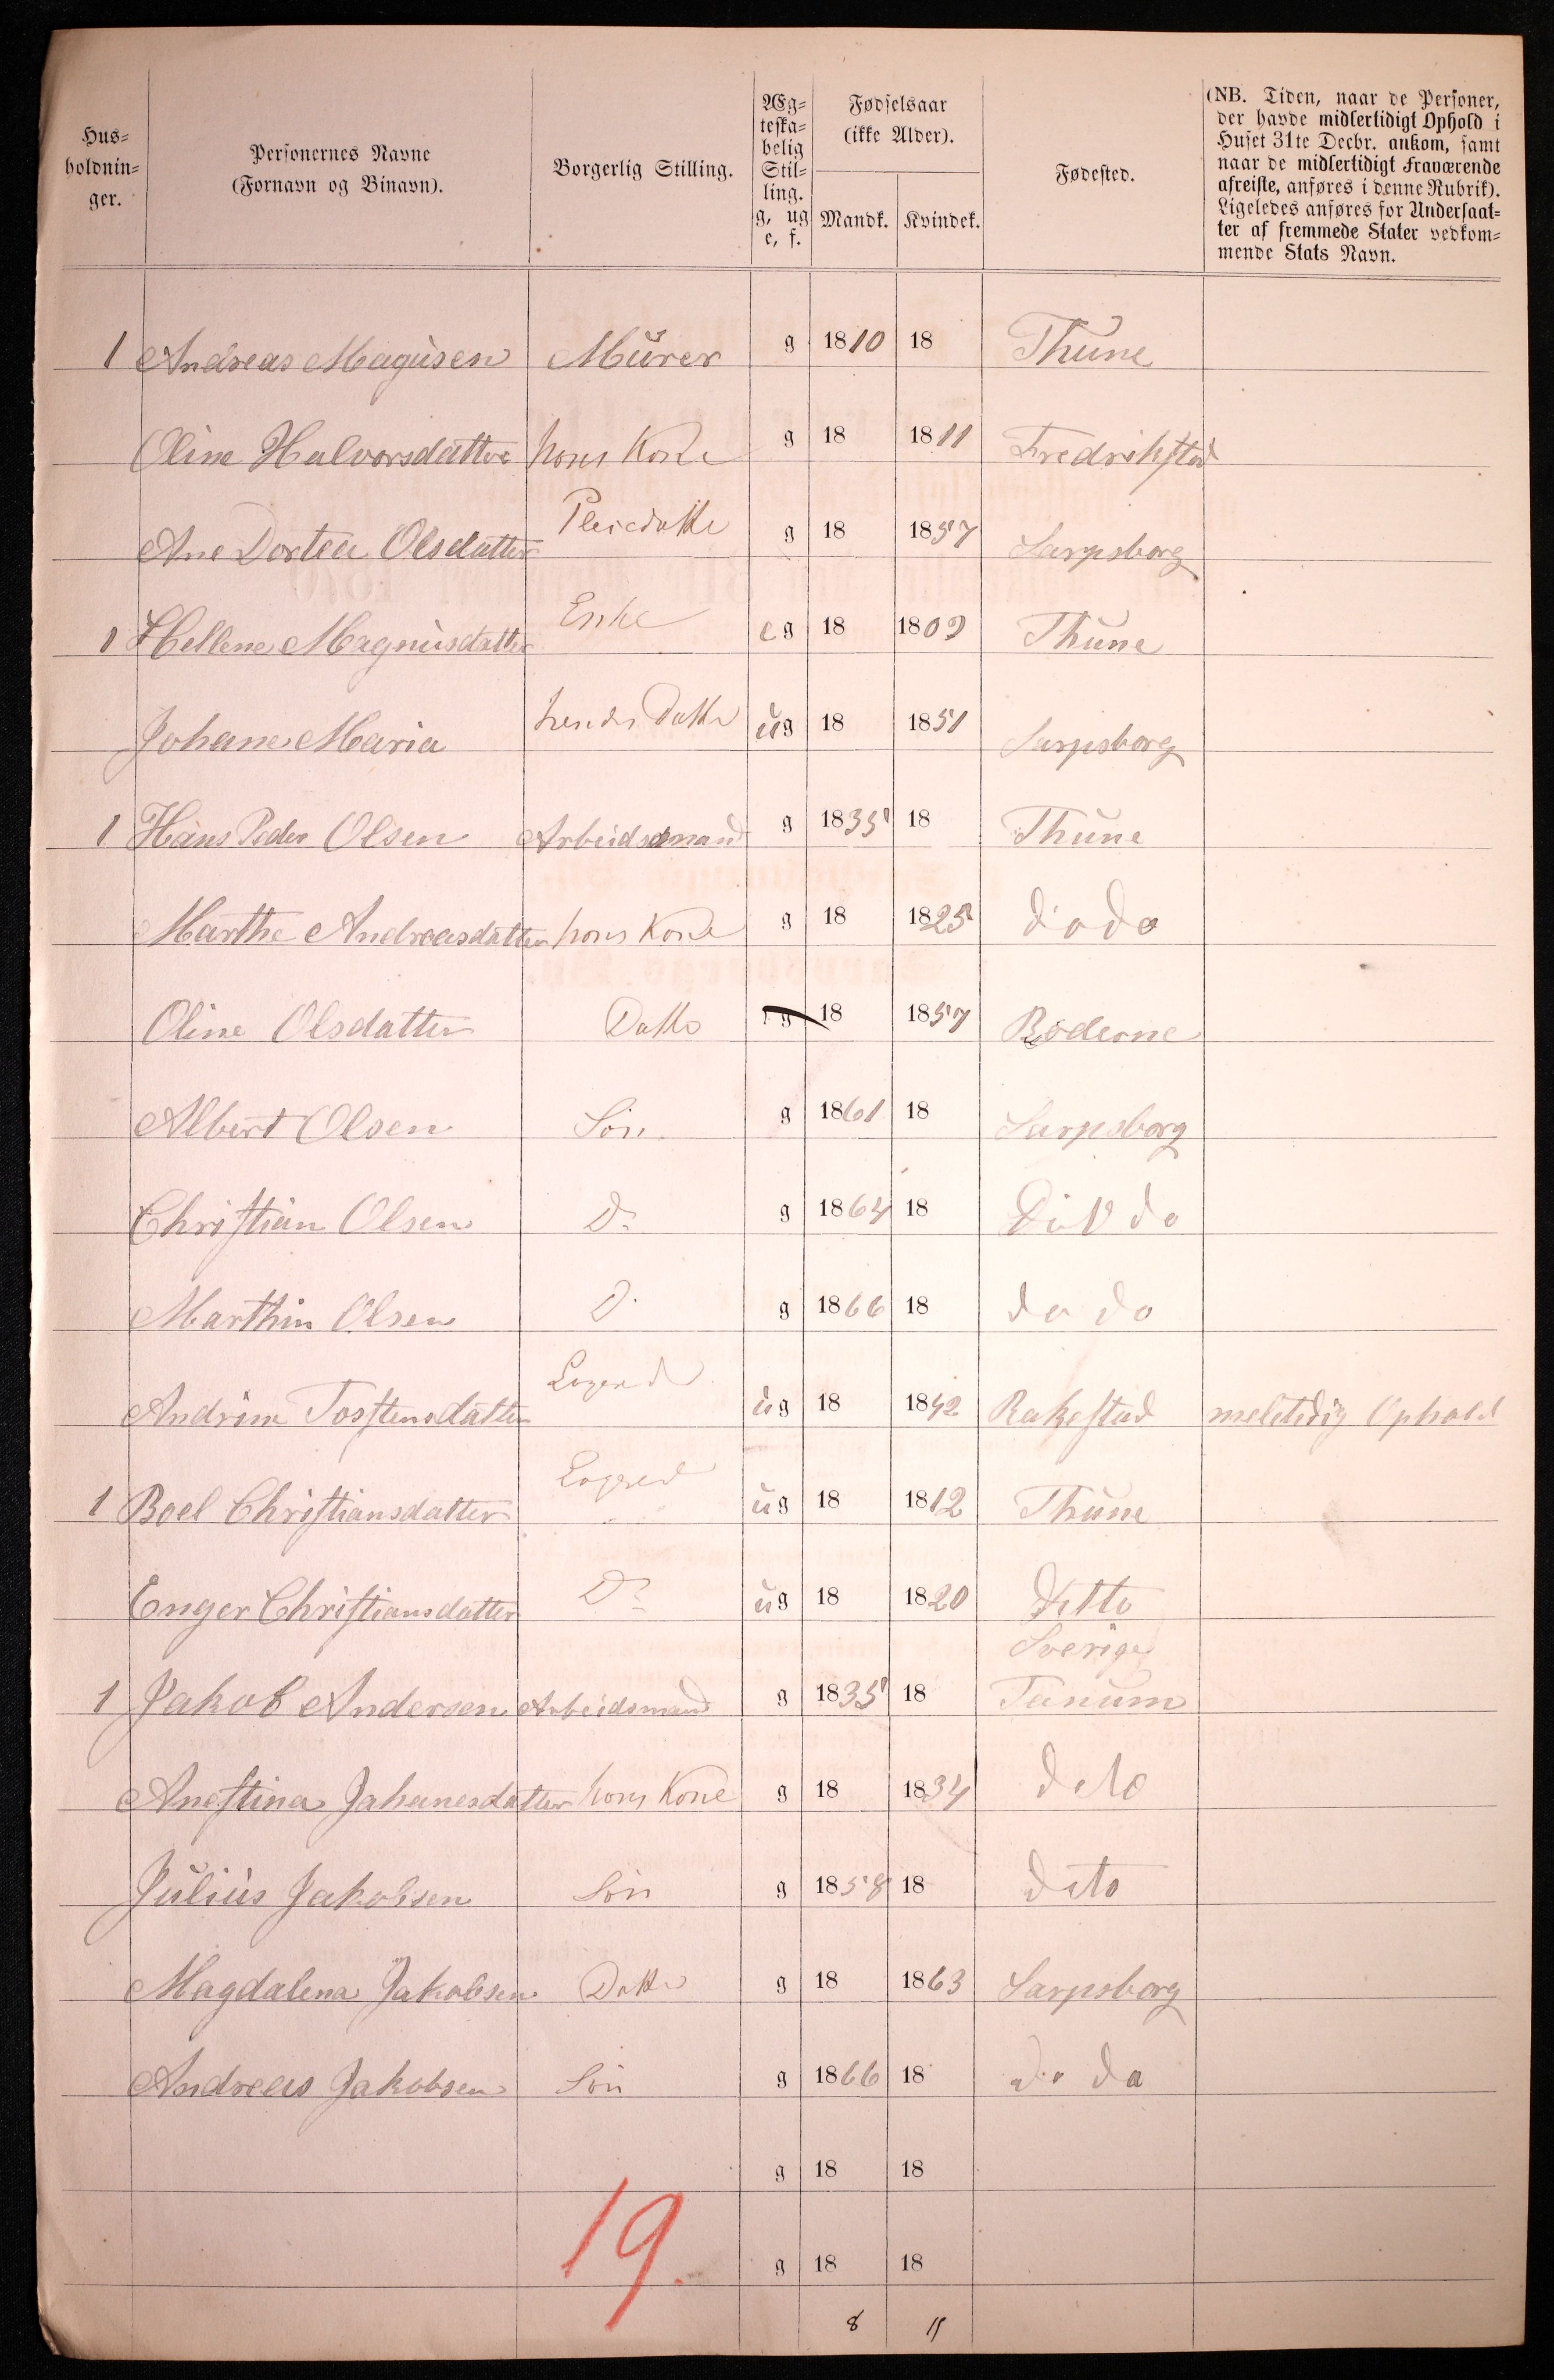 Hus=
holdnin=
ger.
Personernes Navne
(Fornavn og Binavn).
Borgerlig Stilling.
Æg=
teska=
belig
Stil=
ling.
g, ug
e, f.
Fødselsaar
(ikke Alder).
Mandk. Kvindek.
Fødested.
(NB. Tiden, naar de Personer,
der havde midlertidigt Ophold i
Huset 31te Decbr. ankom, samt
naar de midlertidigt Fraværende
afreiste, anføres i denne Rubrik).
Ligeledes anføres for Undersaat=
ter af fremmede Stater vedkom=
mende Stats Navn.
1 Andreas Magusen Murer g 1810 18 Thune
Oline Halvorsdatter hans Kone g 18 1811 Fredrikstad
Ane Dortea Olsdatter Pleiedatte g 18 1857 Sarpsborg
1 Hellene Magnusdatter Enke eg 18 1809 Thune
Johane Maria hendes Datte ug 18 1851 Sarpsborg
1 Hans Peder Olsen Arbeidsmand g 1835 18 Thune
Marthe Andreasdatter hans Kone g 18 1825 do do
Oline Olsdatter Datte g 18 1857 Røderne
Albert Olsen Søn g 1861 18 Sarpsborg
Christian Olsen Do g 1864 18 do
Marthin Olsen D g 1866 18 do do
Andrine Tostensdatter Logerd ug 18 1842 Rakestad meletidig Ophold
1 Boel Christiansdatter Logerd ug 18 1812 Thune
Enger Christiansdatter Do ug 18 1820 Ditto
Sverige
1 Jakob Andersen Arbeidsmand g 1835 18 Tanum
Anestina Jahanesdatter hans Kone g 18 1834 deto
Julius Jakobsen Søn g 1858 18 dito
Magdalena Jakobsen Datte g 18 1863 Sarpsborg
Andreas Jakobsen Søn g 1866 18 do do
g 18 18
19.
g 18 18
8 11